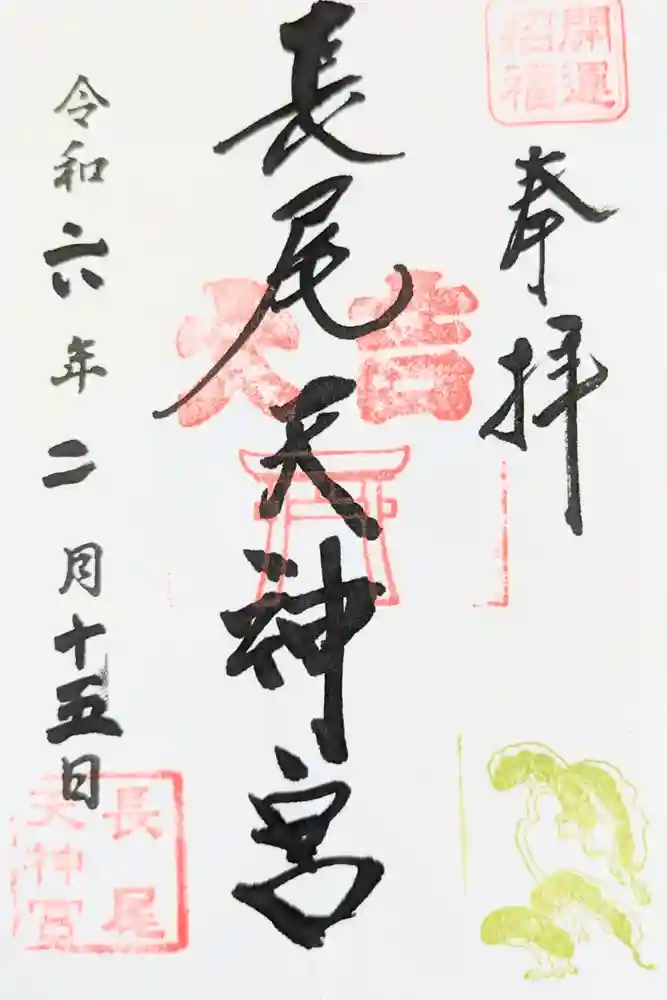 開運
招福
奉拝
長尾天神宮
大吉
令和六年二月十五日
長尾
天神宮